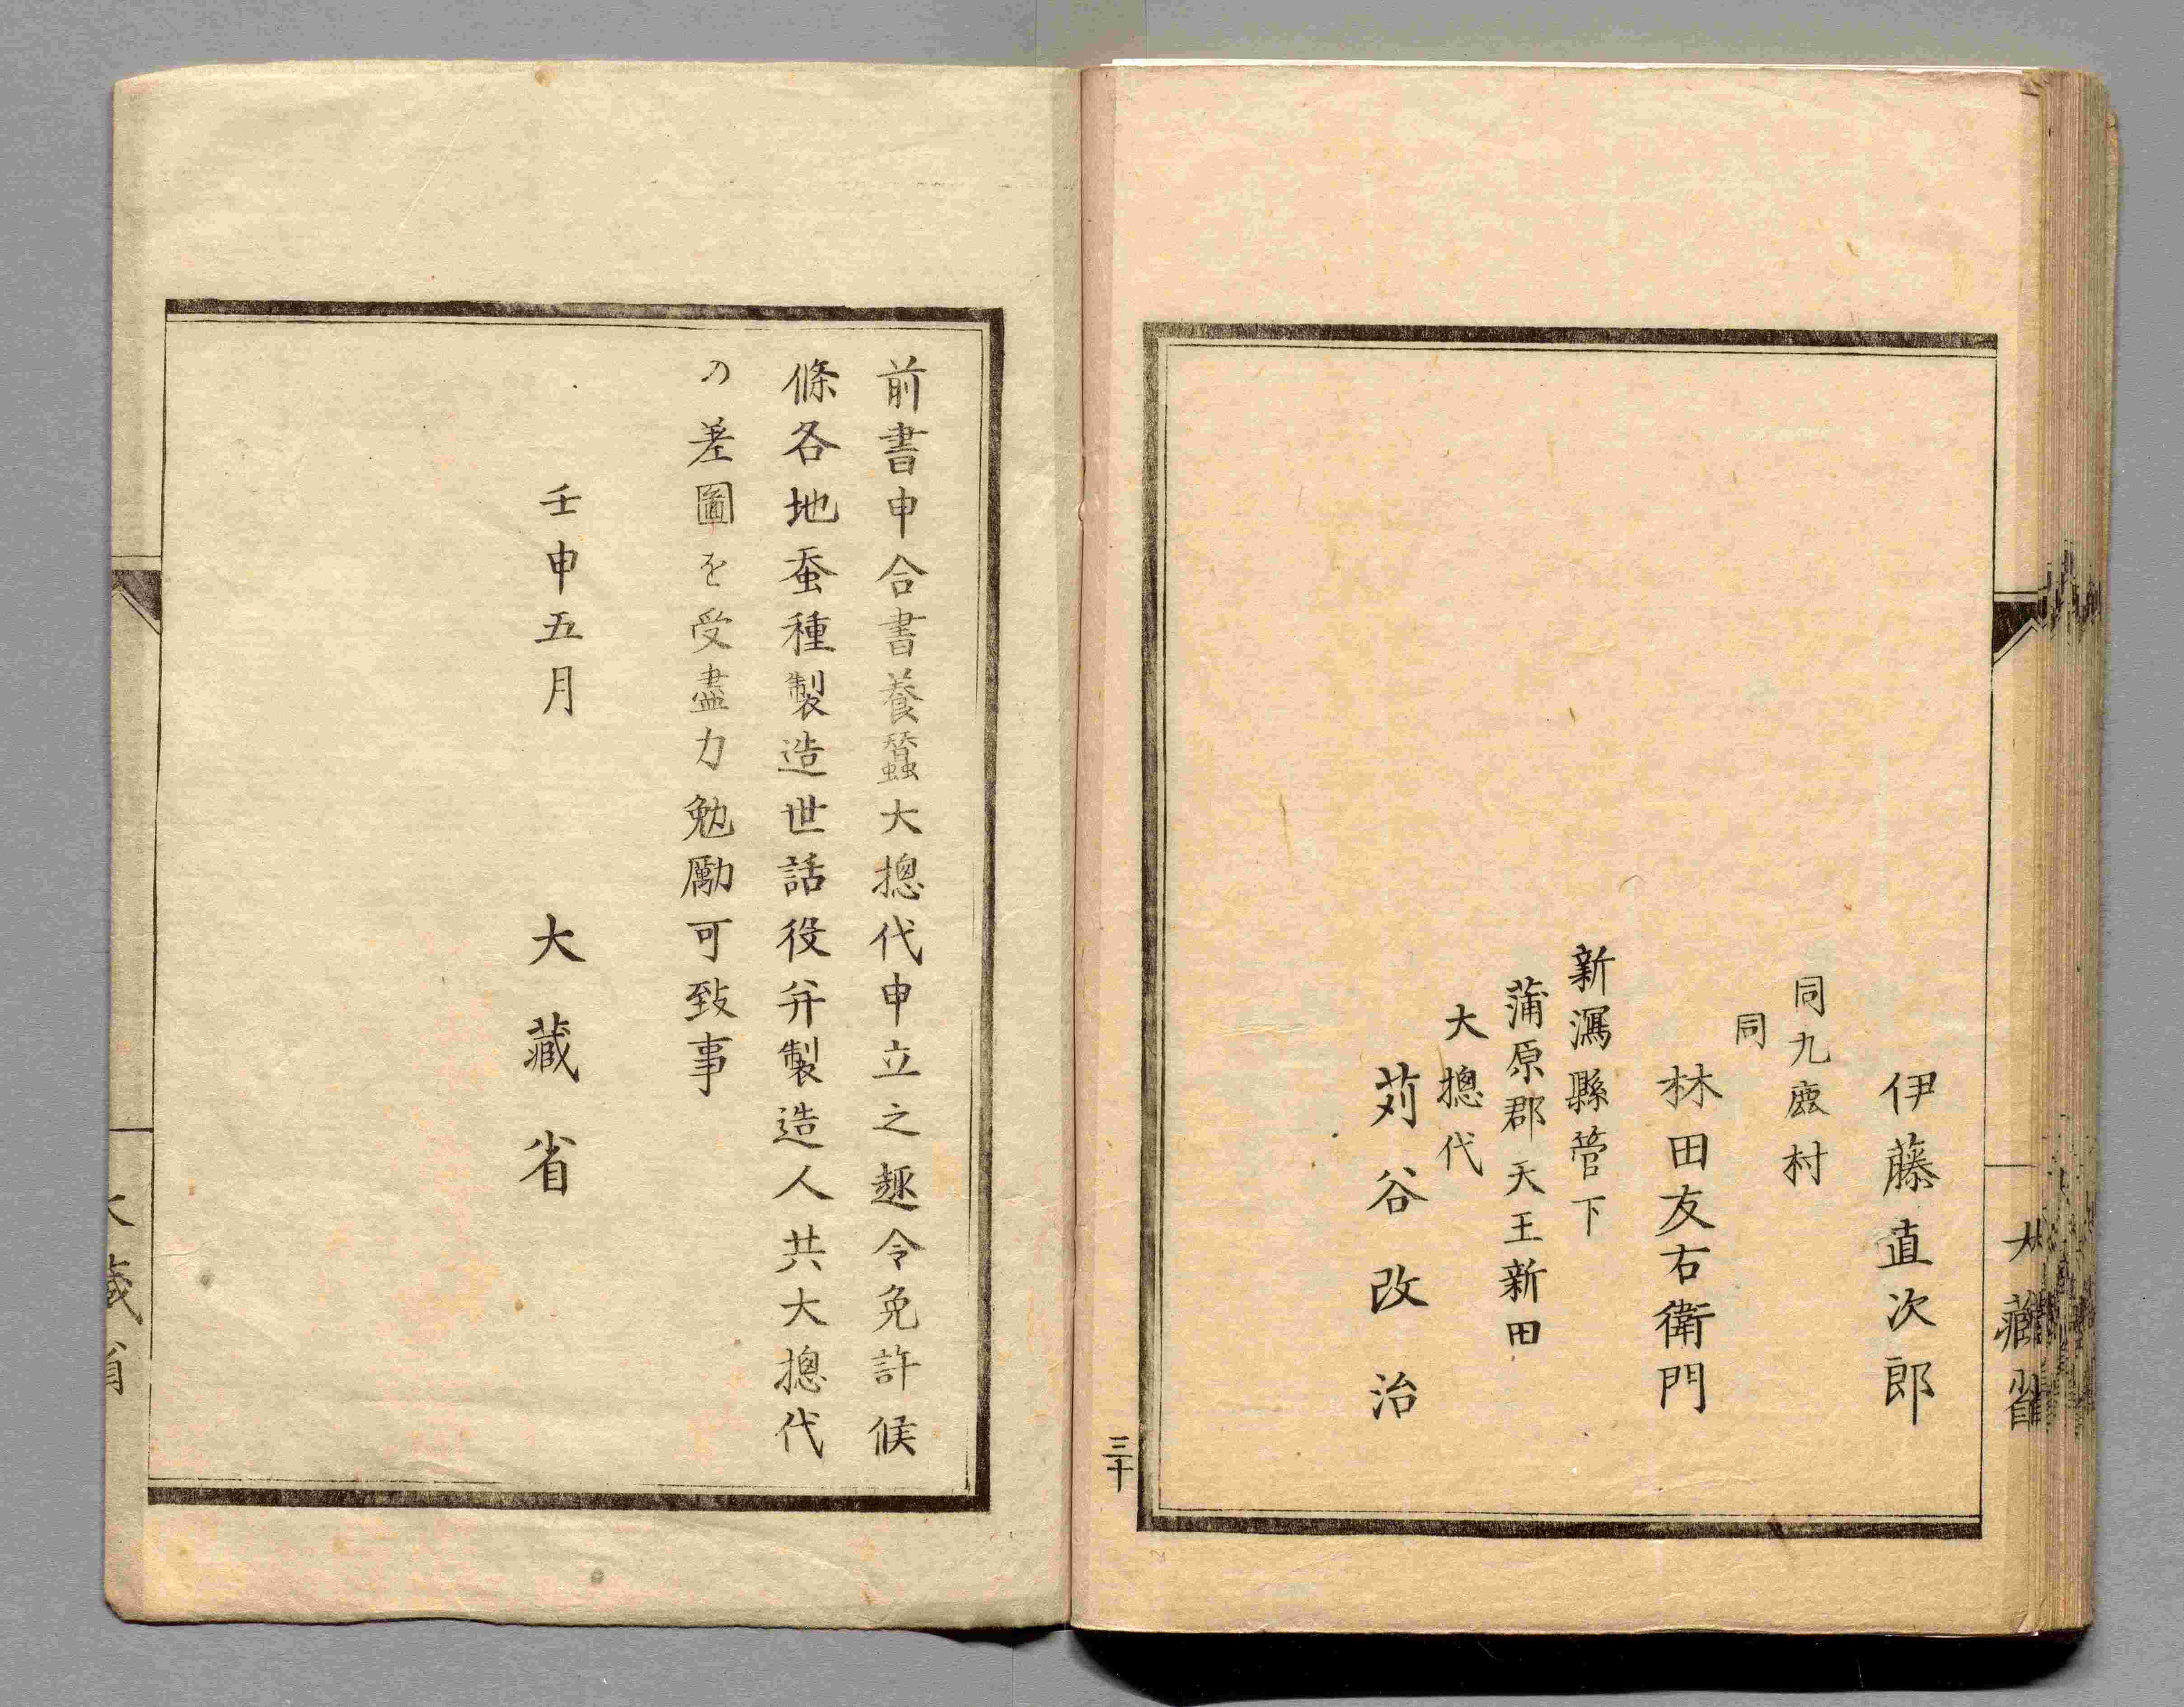 伊藤直次郎
同九鹿村
同
林田友右衛門
新潟縣管下
蒲原郡天王新田
大摠代
苅谷改治
三十
大藏省
前書申合書養蠶大摠代申立之趣令免許候
條各地蚕種製造世話役并製造人共大摠代
の差圖を受盡力勉勵可致事
壬申五月
大藏省
大藏省